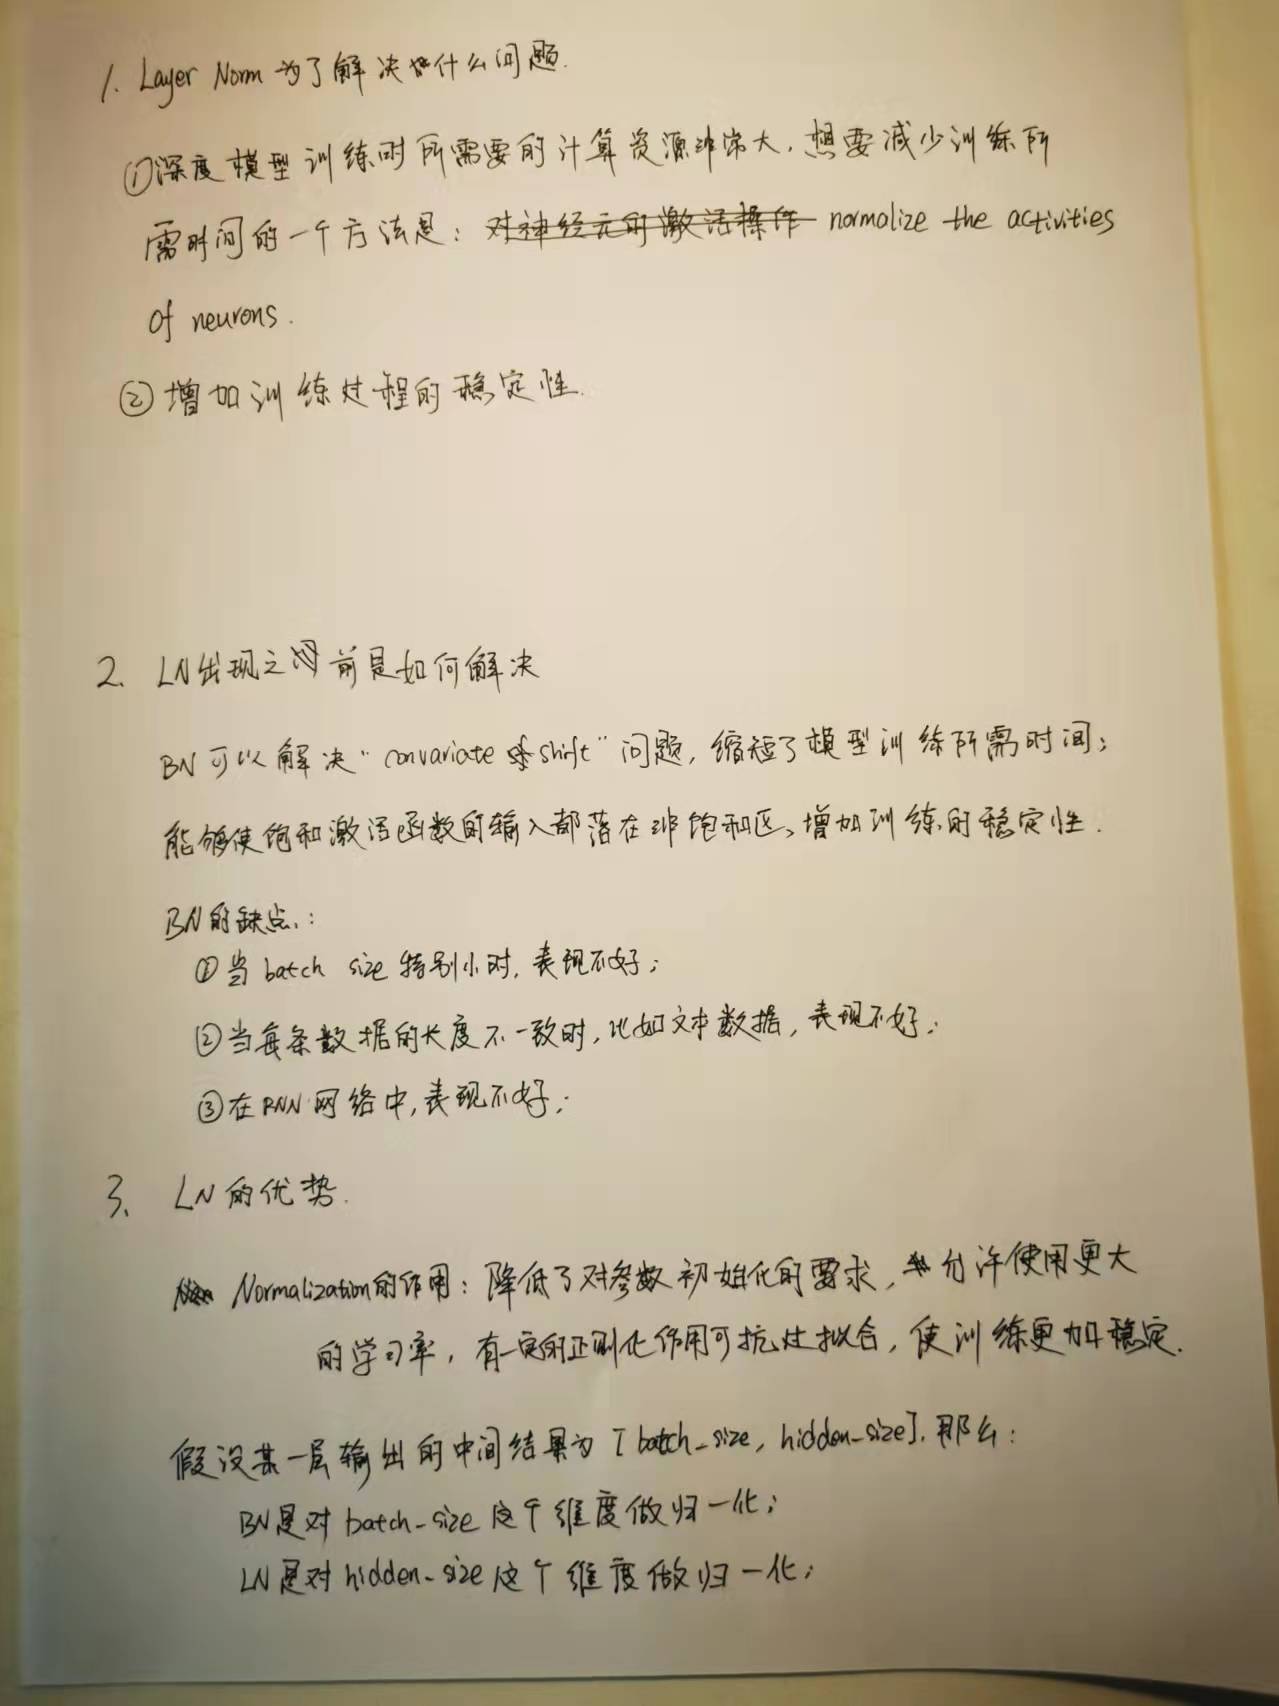 1. Layer Norm 为了解决什么问题.
①深度模型训练时所需要的计算资源非常大, 想要减少训练所
需时间的一个方法是: 对神经元的激活操作 normalize the activities
of neurons.
②增加训练过程的稳定性.
2. LN出现之前是如何解决
BN可以解决"convariate shift"问题, 缩短了模型训练所需时间;
能够使饱和激活函数的输入都落在非饱和区, 增加训练的稳定性.
BN的缺点:
①当batch size特别小时, 表现不好;
②当每条数据的长度不一致时, 比如文本数据, 表现不好;
③在RNN网络中, 表现不好;
3. LN的优势.
Normalization的作用: 降低了对参数初始化的需求, 允许使用更大
的学习率, 有一定的正则化作用可抗过拟合, 使训练更加稳定.
假设某一层输出的中间结果为 [batch_size, hidden_size], 那么:
BN是对batch_size这个维度做归一化;
LN是对hidden_size这个维度做归一化;